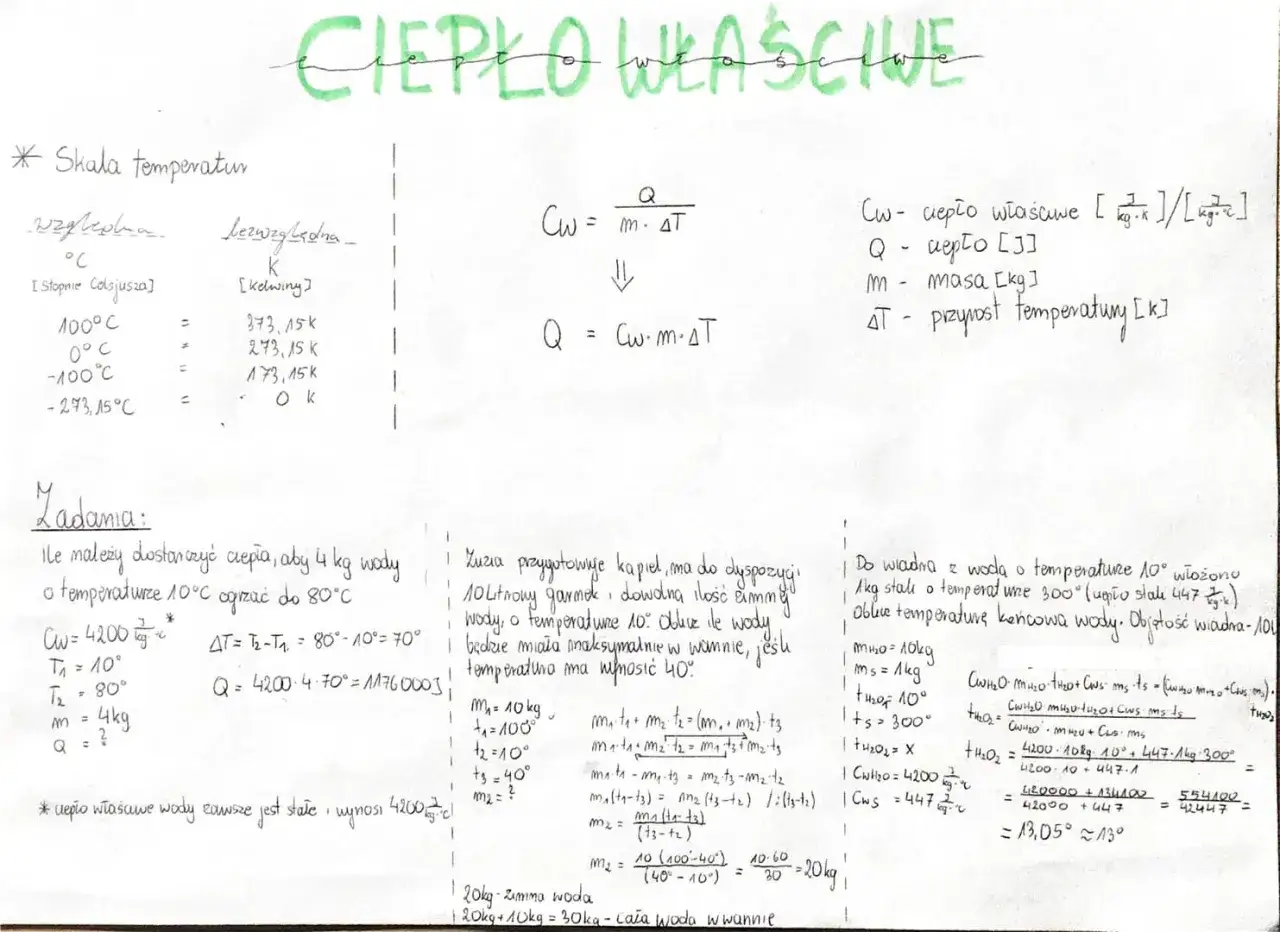 CIEPŁO WŁAŚCIWE
ciepło właściwe
* Skala temperatur
względna bezwzględna
°C K
[Stopnie Celsjusza] [Kelwiny]
100°C = 373,15K
0°C = 273,15K
-100°C = 173,15K
-273,15°C = 0 K
Cw = Q / m · ΔT
⇓
Q = Cw·m·ΔT
Cw - ciepło właściwe [J/kg·K]/[J/kg·°C]
Q - ciepło [J]
m - masa [kg]
ΔT - przyrost temperatury [K]
Zadania:
Ile należy dostarczyć ciepła, aby 4 kg wody
o temperaturze 10°C ogrzać do 80°C
Cw = 4200 J/kg·°C *
T₁ = 10°
T₂ = 80°
m = 4kg
Q = ?
ΔT = T₂-T₁ = 80°-10° = 70°
Q = 4200·4·70° = 1176000J
* ciepło właściwe wody zawsze jest stałe i wynosi 4200 J/kg·°C
Zuzia przygotowuje kąpiel, ma do dyspozycji
10 litrowy garnek i dowolną ilość zimnej
wody, o temperaturze 10°. Oblicz ile wody
będzie miała maksymalnie w wannie, jeśli
temperatura ma wynosić 40°.
m₁ = 10kg
t₁ = 100°
t₂ = 10°
t₃ = 40°
m₂ = ?
m₁·t₁ + m₂·t₂ = (m₁ + m₂)·t₃
m₁·t₁ + m₂·t₂ = m₁·t₃ + m₂·t₃
m₁·t₁ - m₁·t₃ = m₂·t₃ - m₂·t₂
m₁(t₁-t₃) = m₂(t₃-t₂) /:(t₃-t₂)
m₂ = m₁(t₁-t₃) / (t₃-t₂)
m₂ = 10(100°-40°) / (40°-10°) = 10·60 / 30 = 20kg
20kg - zimna woda
20kg + 10kg = 30kg - cała woda w wannie
Do wiadra z wodą o temperaturze 10° włożono
1kg stali o temperaturze 300° (ciepło stali 447 J/kg·K)
Oblicz temperaturę końcową wody. Objętość wiadra - 10l
mH₂O = 10kg
ms = 1kg
tH₂O₁ = 10°
ts = 300°
tH₂O₂ = x
CwH₂O = 4200 J/kg·°C
Cws = 447 J/kg·°C
CwH₂O·mH₂O·tH₂O + Cws·ms·ts = (CwH₂O·mH₂O + Cws·ms)·tH₂O₂
tH₂O₂ = CwH₂O·mH₂O·tH₂O + Cws·ms·ts / CwH₂O·mH₂O + Cws·ms
tH₂O₂ = 4200·10kg·10° + 447·1kg·300° / 4200·10 + 447·1 =
= 420000 + 134100 / 42000 + 447 = 554100 / 42447 =
= 13,05° ≈ 13°